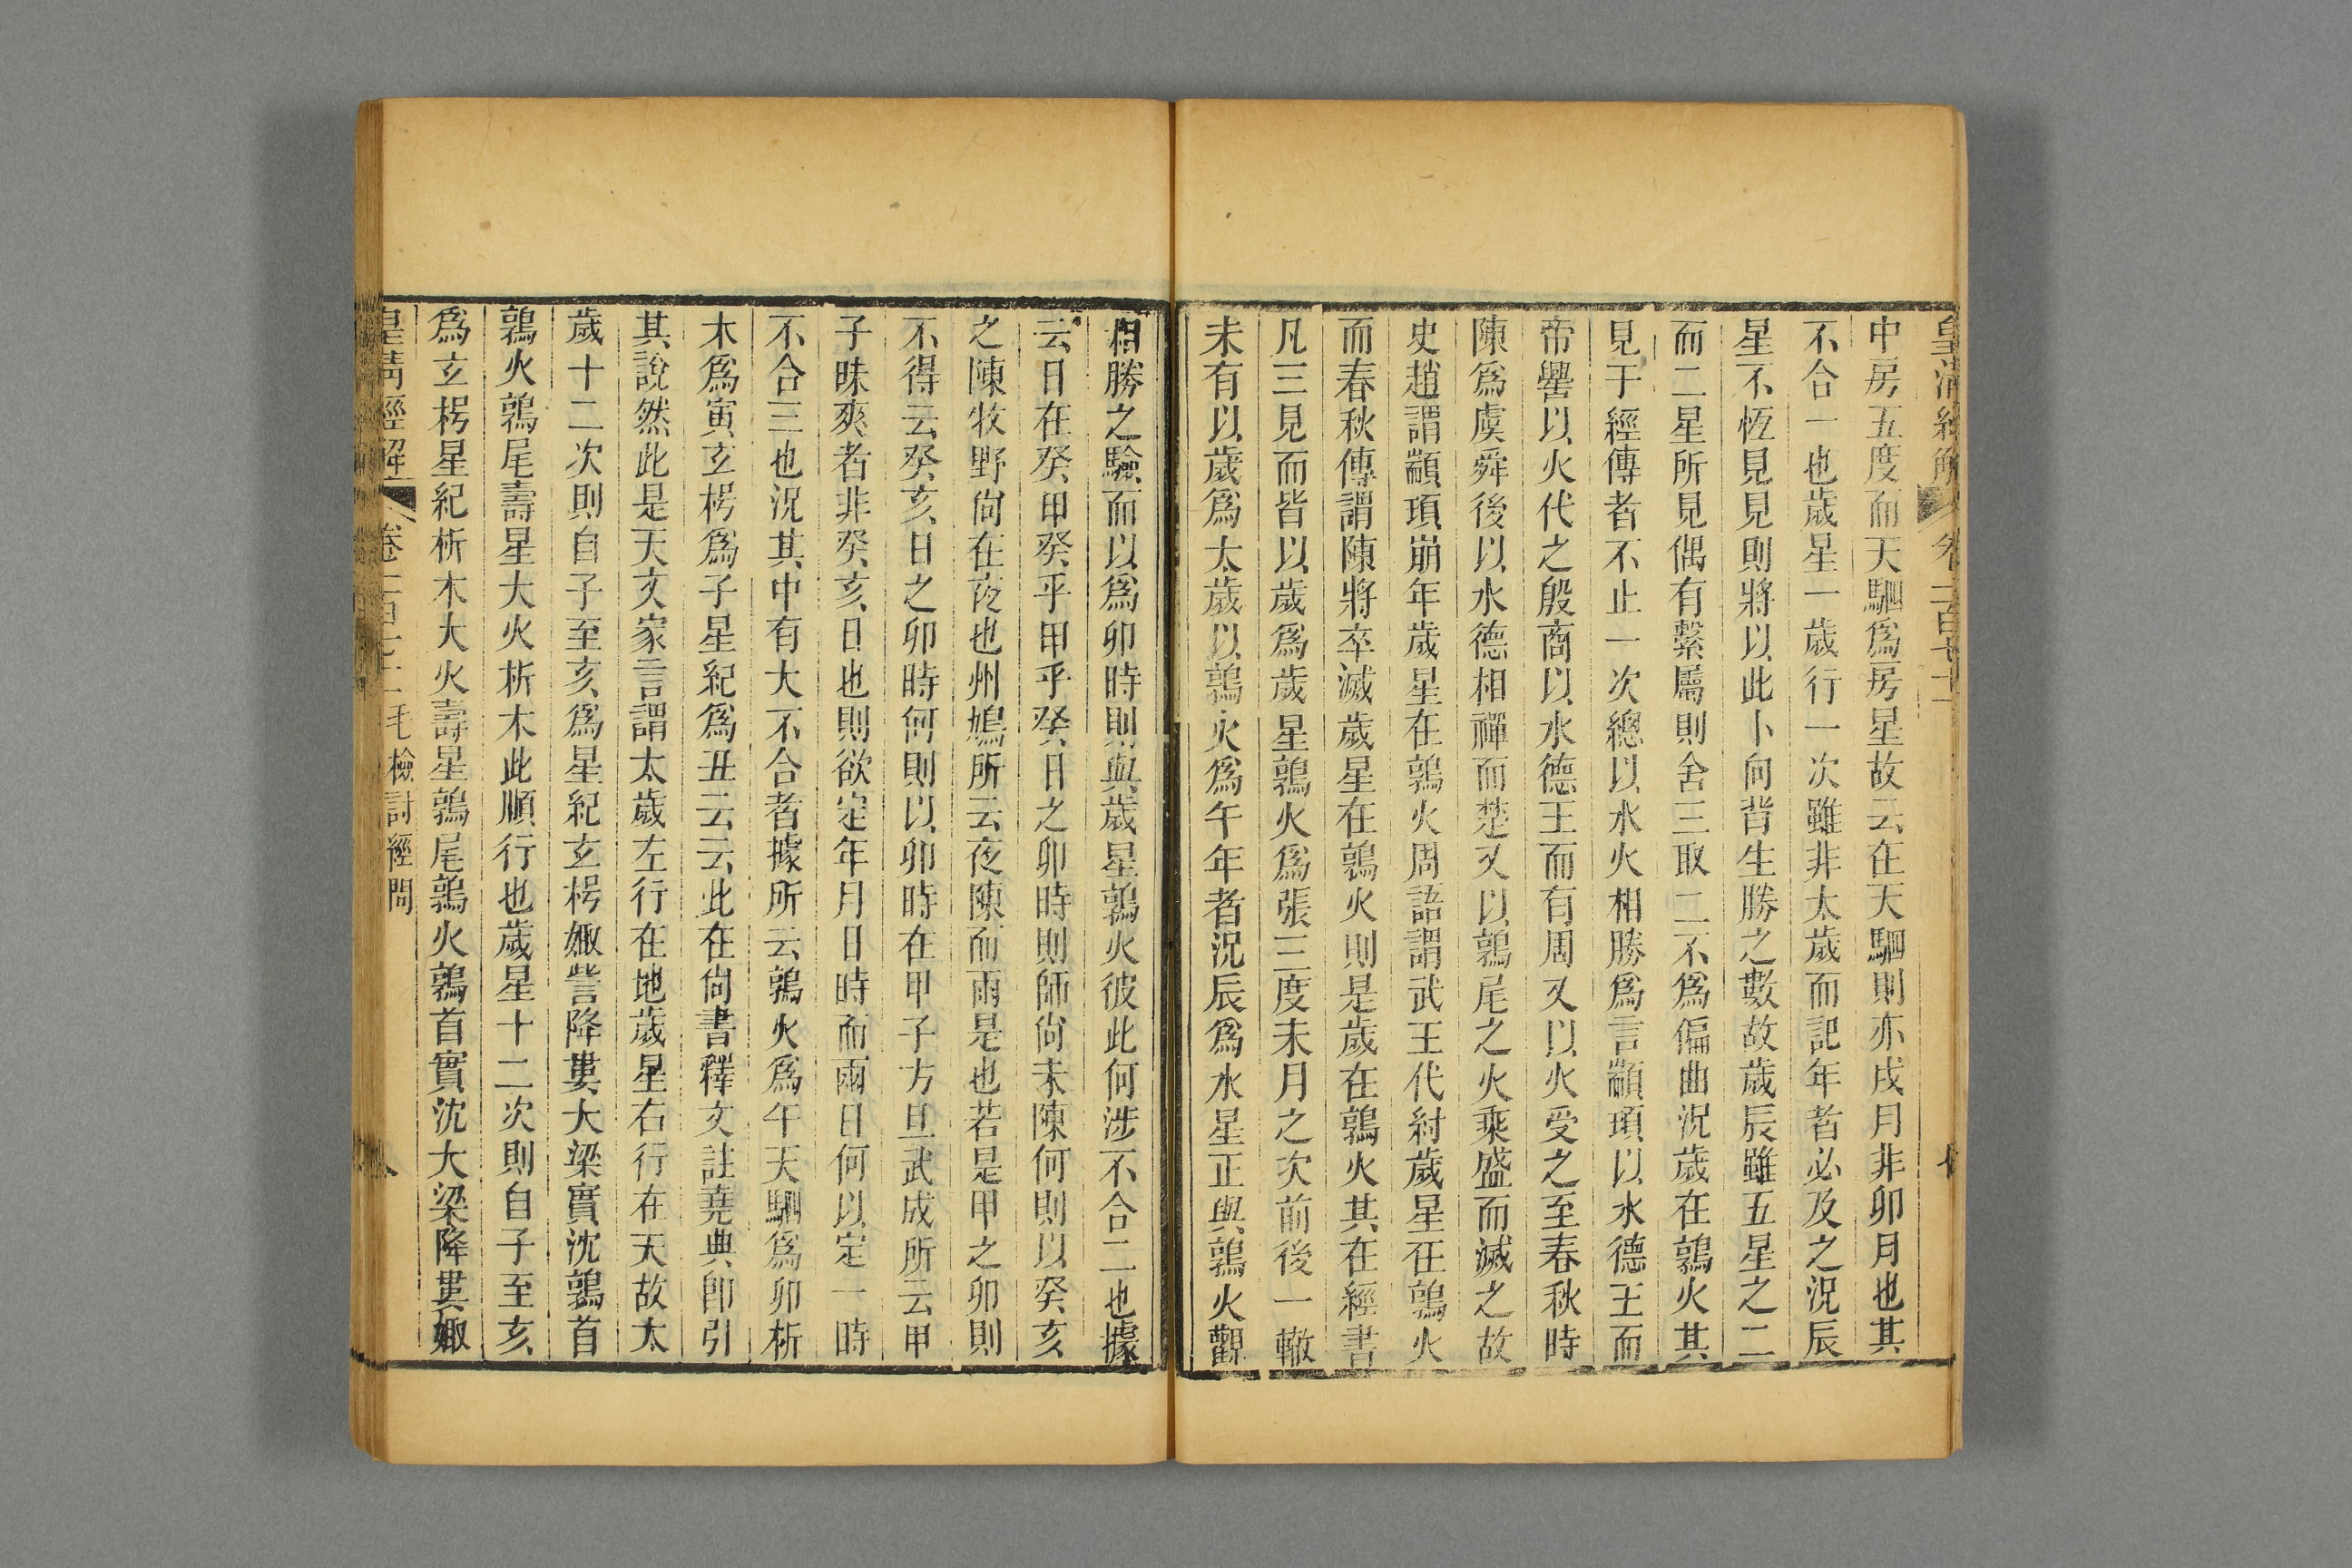 皇清經解
中房五度而天駟爲房星故云在天駟則亦戌月非卯月也其
不合一也歲星一歲行一次雖非太歲而記年者必及之況辰
星不恆見見則將以此卜向背生勝之數故歲辰雖五星之二
而二星所見偶有繫屬則舍三取二不爲偏曲況歲在鶉火其
見于經傳者不止一次總以水火相勝爲言顓頊以水德王而
帝嚳以火代之殷商以水德王而有周又以火受之至春秋時
陳爲虞舜後以水德相禪而楚又以鶉尾之火乘盛而滅之故
史趙謂顓頊崩年歲星在鶉火周語謂武王代紂歲星在鶉火
而春秋傳謂陳將卒滅歲星在鶉火則是歲在鶉火其在經書
凡三見而皆以歲爲歲星鶉火爲張三度未月之次前後一轍
未有以歲爲太歲以鶉火爲午年者況辰爲水星正與鶉火觀
相勝之驗而以爲卯時則與歲星鶉火彼此何涉不合二也據
云日在癸甲癸乎甲乎癸日之卯時則師尙未陳何則以癸亥
之陳牧野尙在夜也州鳩所云夜陳而雨是也若是甲之卯則
不得云癸亥日之卯時何則以卯時在甲子方旦武成所云甲
子昧爽者非癸亥日也則欲定年月日時而雨日何以定一時
不合三也況其中有大不合者據所云鶉火爲午天駟爲卯析
木爲寅玄枵爲子星紀爲丑云云此在尙書釋文註堯典卽引
其說然此是天文家言謂太歲左行在地歲星右行在天故太
歲十二次則自子至亥爲星紀玄枵娵訾降婁大梁實沈鶉首
鶉火鶉尾壽星大火析木此順行也歲星十二次則自子至亥
爲玄枵星紀析木大火壽星鶉尾鶉火鶉首實沈大梁降婁娵
皇清經解 毛檢討經問 八